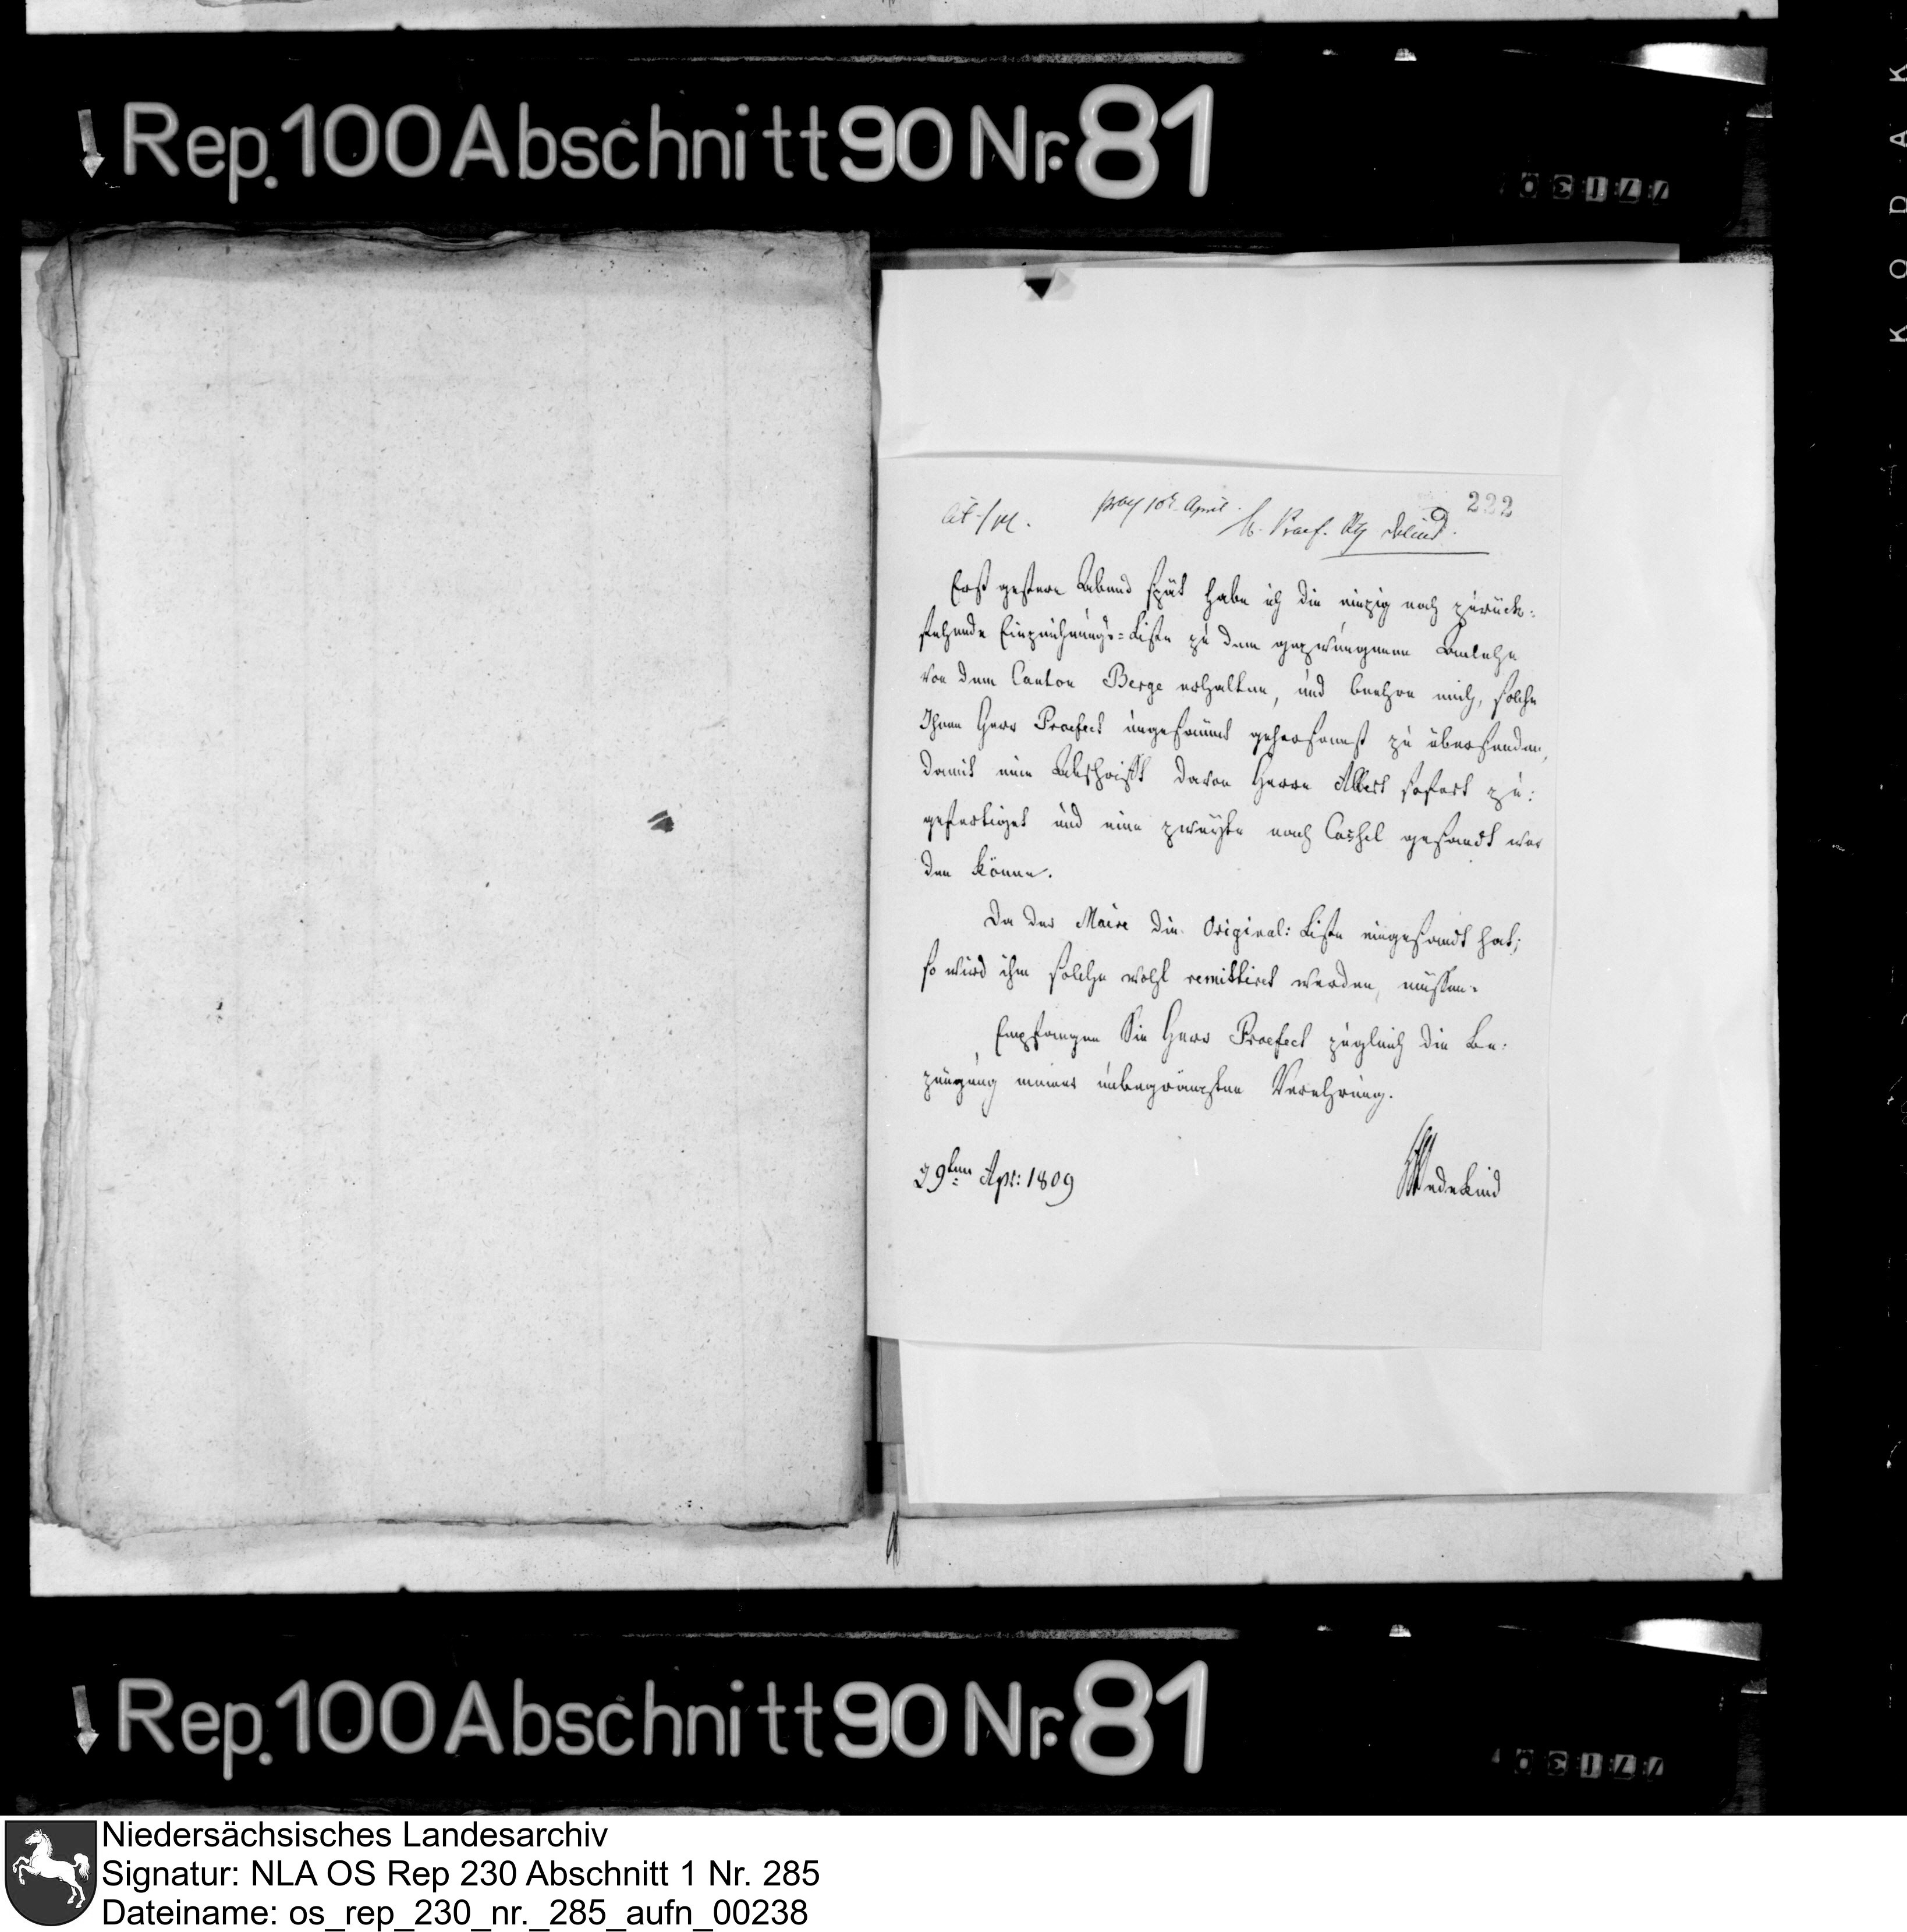 Rep. 100 Abschnitt 90 Nr. 81
222
10t. April.
Erst gestern Abend spät habe ich die einzig noch zurück:
stehende Einzeichnungs=Liste zu dem gezwungenen Anlehn
von dem Canton Berge erhalten, und beehre mich, solche
Ihnen Herr Praefect ungesäumt gehorsamst zu übersenden,
damit eine Abschrift davon Herrn Albert sofort zu:
gefertiget und eine zweyte nach Cassel gesandt wer
den könne.
Da der Maire die Original: Liste eingesandt hat;
so wird ihm solche wohl remittiret werden, müssen.
Empfangen Sie Herr Praefect zugleich die Be:
zeugung meiner unbegränzten Verehrung.
9ten Apr: 1809
Wedekind
Rep. 100 Abschnitt 90 Nr. 81
KODAK
Niedersächsisches Landesarchiv
Signatur: NLA OS Rep 230 Abschnitt 1 Nr. 285
Dateiname: os_rep_230_nr._285_aufn_00238